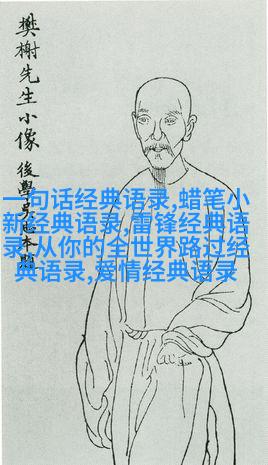 樊榭先生小像
後學
一句话经典语录,蜡笔小
新经典语录,雷锋经典语
录,从你的全世界路过经
典语录,爱情经典语录